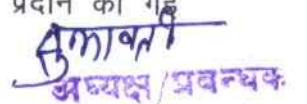 प्रदान की गई
अध्यक्ष/प्रबन्धक